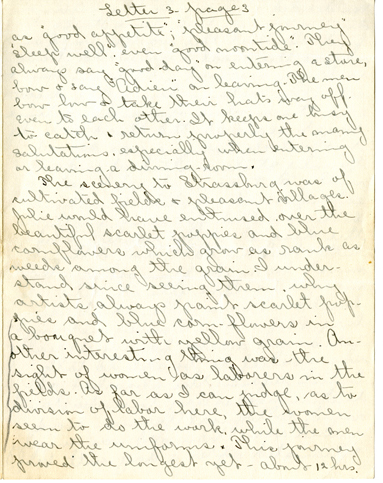 Letter 3. page 3
as "good appetite"; "pleasant journey"
"sleep well" even "good noontide". They
always say "good day" on entering a store,
bow & say "Adieu" on leaving. The men
bow low & take their hats way off
even to each other. It keeps one busy
to catch & return properly the many
salutations, especially when entering
or leaving a dining-room.
The scenery to Strassburg was of
cultivated fields & pleasant villages.
would have enthused over the
beautiful scarlet poppies and blue
cornflowers which grow as rank as
weeds among the grain. I under-
stand since seeing them, why
artists always paint scarlet pop-
pies and blue corn-flowers in
a bouquet with yellow grain. An-
other interesting thing was the
sight of women as laborers in the
fields. As far as I can judge, as to
division of labor here, the women
seem to do the work, while the men
wear the uniforms. This journey
proved the longest yet - about 12 hrs.